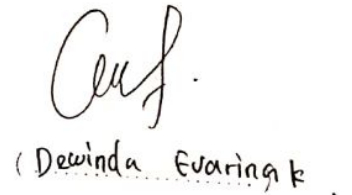 (Dewinda Evaringk